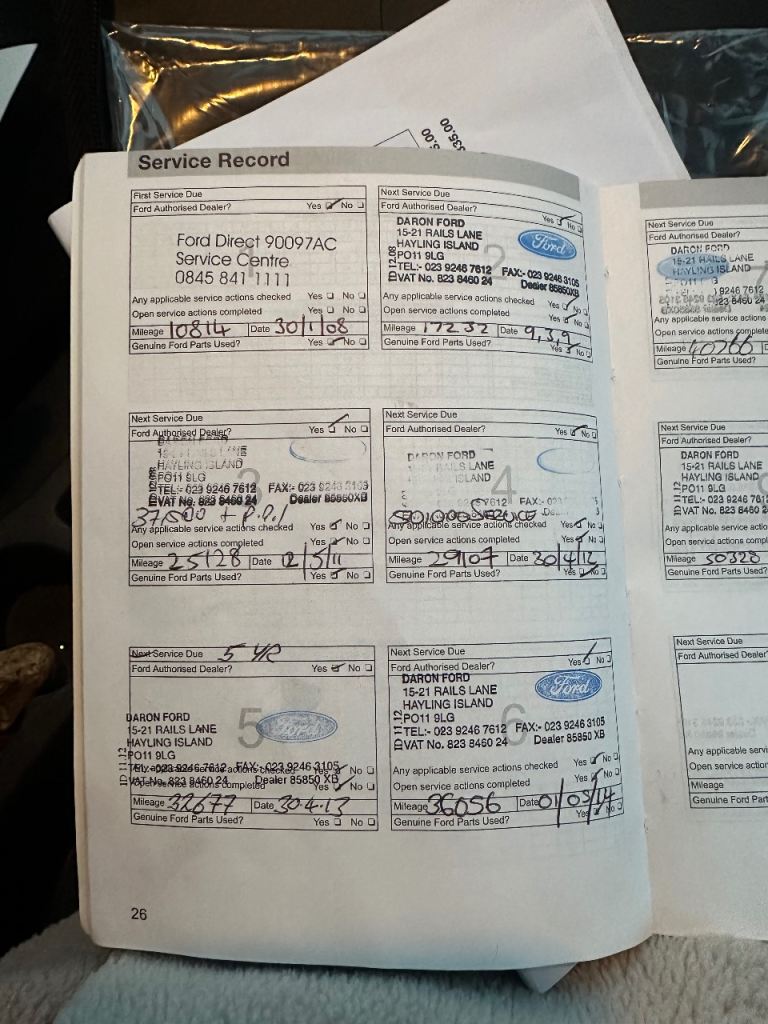 5.00
£35.00
Service Record
First Service Due
Ford Authorised Dealer? Yes No
Ford Direct 90097AC
Service Centre
0845 841 1111
1
Any applicable service actions checked Yes No
Open service actions completed Yes No
Mileage 10814 Date 30/1/08
Genuine Ford Parts Used? Yes No
Next Service Due
Ford Authorised Dealer? Yes No
DARON FORD
15-21 RAILS LANE
HAYLING ISLAND
PO11 9LG
TEL:- 023 9246 7612 FAX:- 023 9246 3105
VAT No. 823 8460 24 Dealer 85850XB
ID 12.08
Ford
2
Any applicable service actions checked Yes No
Open service actions completed Yes No
Mileage 17232 Date 9,3,9
Genuine Ford Parts Used? Yes No
Next Service Due
Ford Authorised Dealer? Yes No
DARON FORD
HAYLING ISLAND
PO11 9LG
TEL:- 023 9246 7612 FAX:- 023 9246 3105
VAT No. 823 8460 24 Dealer 85850XB
3
37,500 + P.D.I
Any applicable service actions checked Yes No
Open service actions completed Yes No
Mileage 25128 Date 12/5/11
Genuine Ford Parts Used? Yes No
Next Service Due
Ford Authorised Dealer? Yes No
DARON FORD
RAILS LANE
ISLAND
4
7612 FAX:- 023
50,000 SERVICE
Any applicable service actions checked Yes No
Open service actions completed Yes No
Mileage 29107 Date 30/4/12
Genuine Ford Parts Used? Yes No
Next Service Due 5 YR
Ford Authorised Dealer? Yes No
DARON FORD
15-21 RAILS LANE
HAYLING ISLAND
PO11 9LG
TEL:- 023 9246 7612 FAX:- 023 9246 3105
VAT No. 823 8460 24 Dealer 85850 XB
ID 11.12
Ford
5
Any applicable service actions checked Yes No
Open service actions completed Yes No
Mileage 32677 Date 30.4.13
Genuine Ford Parts Used? Yes No
Next Service Due
Ford Authorised Dealer? Yes No
DARON FORD
15-21 RAILS LANE
HAYLING ISLAND
PO11 9LG
TEL:- 023 9246 7612 FAX:- 023 9246 3105
VAT No. 823 8460 24 Dealer 85850 XB
ID 11.12
Ford
6
Any applicable service actions checked Yes No
Open service actions completed Yes No
Mileage 36056 Date 01/05/14
Genuine Ford Parts Used? Yes No
26
Next Service Due
Ford Authorised Dealer?
DARON FORD
15-21 RAILS LANE
HAYLING ISLAND
PO11
9246 7612
823 8460 24
7
Any applicable service actions
Open service actions complete
Mileage 40766
Genuine Ford Parts Used?
Next Service Due
Ford Authorised Dealer?
DARON FORD
15-21 RAILS LANE
HAYLING ISLAND
PO11 9LG
TEL:- 023 9246 761
VAT No. 823 8460 2
Any applicable service actio
Open service actions comp
Mileage 50328
Genuine Ford Parts Used?
Next Service Due
Ford Authorised Dealer
Any applicable servi
Open service action
Mileage
Genuine Ford Parts